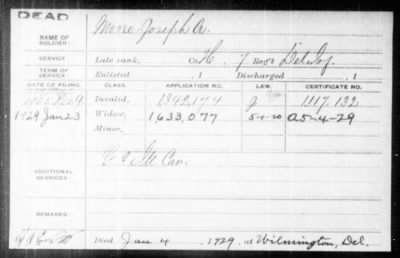 DEAD
NAME OF SOLDIER:
Monro Joseph A.
SERVICE:
Late rank, Co. H, 7 Reg't Del. Inf.
TERM OF SERVICE:
Enlisted , 1 Discharged , 1
DATE OF FILING. CLASS. APPLICATION NO. LAW. CERTIFICATE NO.
Invalid, 1342,174 1117.132
1929 Jan 23 Widow, 1,633,077 5-1-20 A5-4-29
Minor,
ADDITIONAL SERVICES:
REMARKS:
Died Jan 4, 1929, at Wilmington, Del.